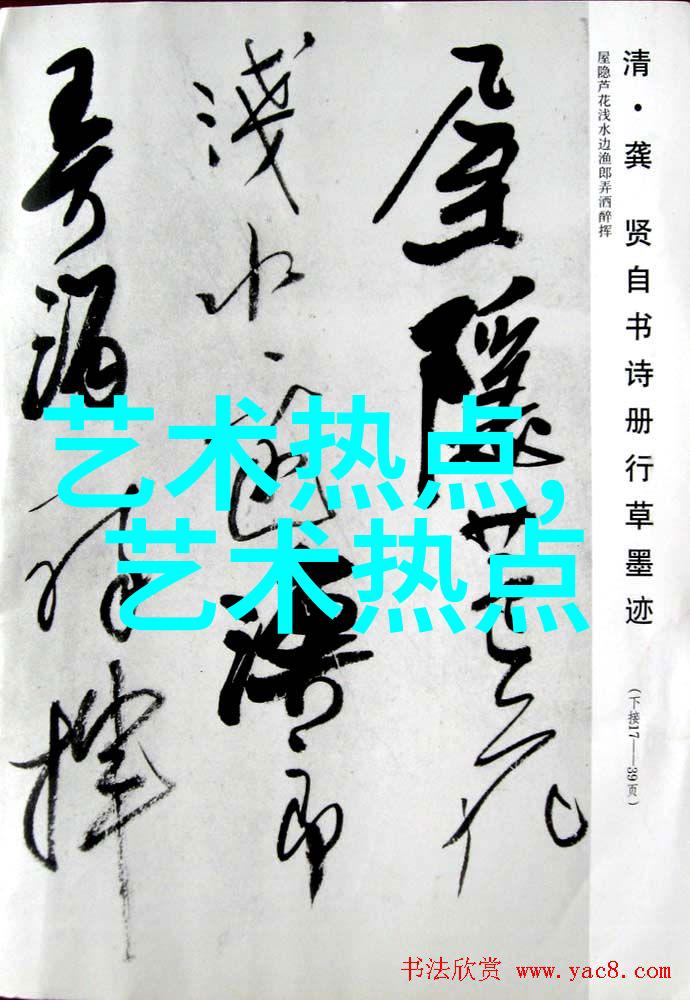 清·龚 贤自书诗册行草墨迹
(下接17——39页)
屋隐芦花浅水边渔郎弄洒醉挥
屋隱蘆花
淺水邊漁郎
弄酒醉揮
艺术热点,
艺术热点
书法欣赏 www.yac8.com